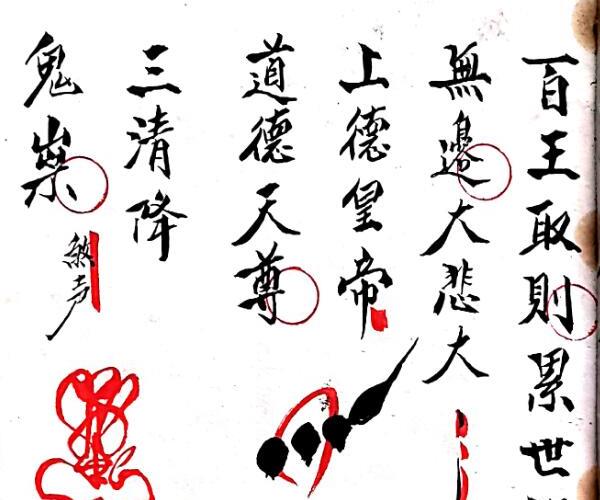 百王取則累世
無邊大悲大
上德皇帝
道德天尊
三清降
鬼祟
煞声